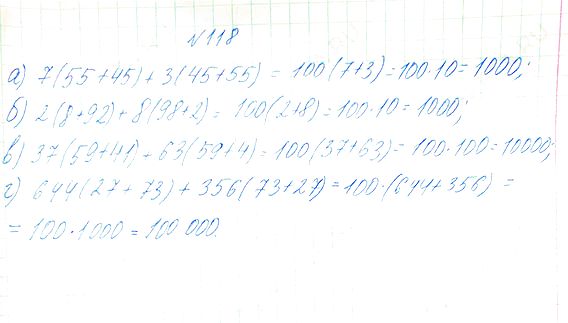 №118
а) 7(55+45)+3(45+55) = 100(7+3)=100·10=1000;
б) 2(8+92)+8(98+2)= 100(2+8)=100·10=1000;
в) 37(59+41)+63(59+4)=100(37+63)=100·100=10000;
г) 644(27+73)+356(73+27)=100·(644+356) =
= 100·1000 = 100 000.